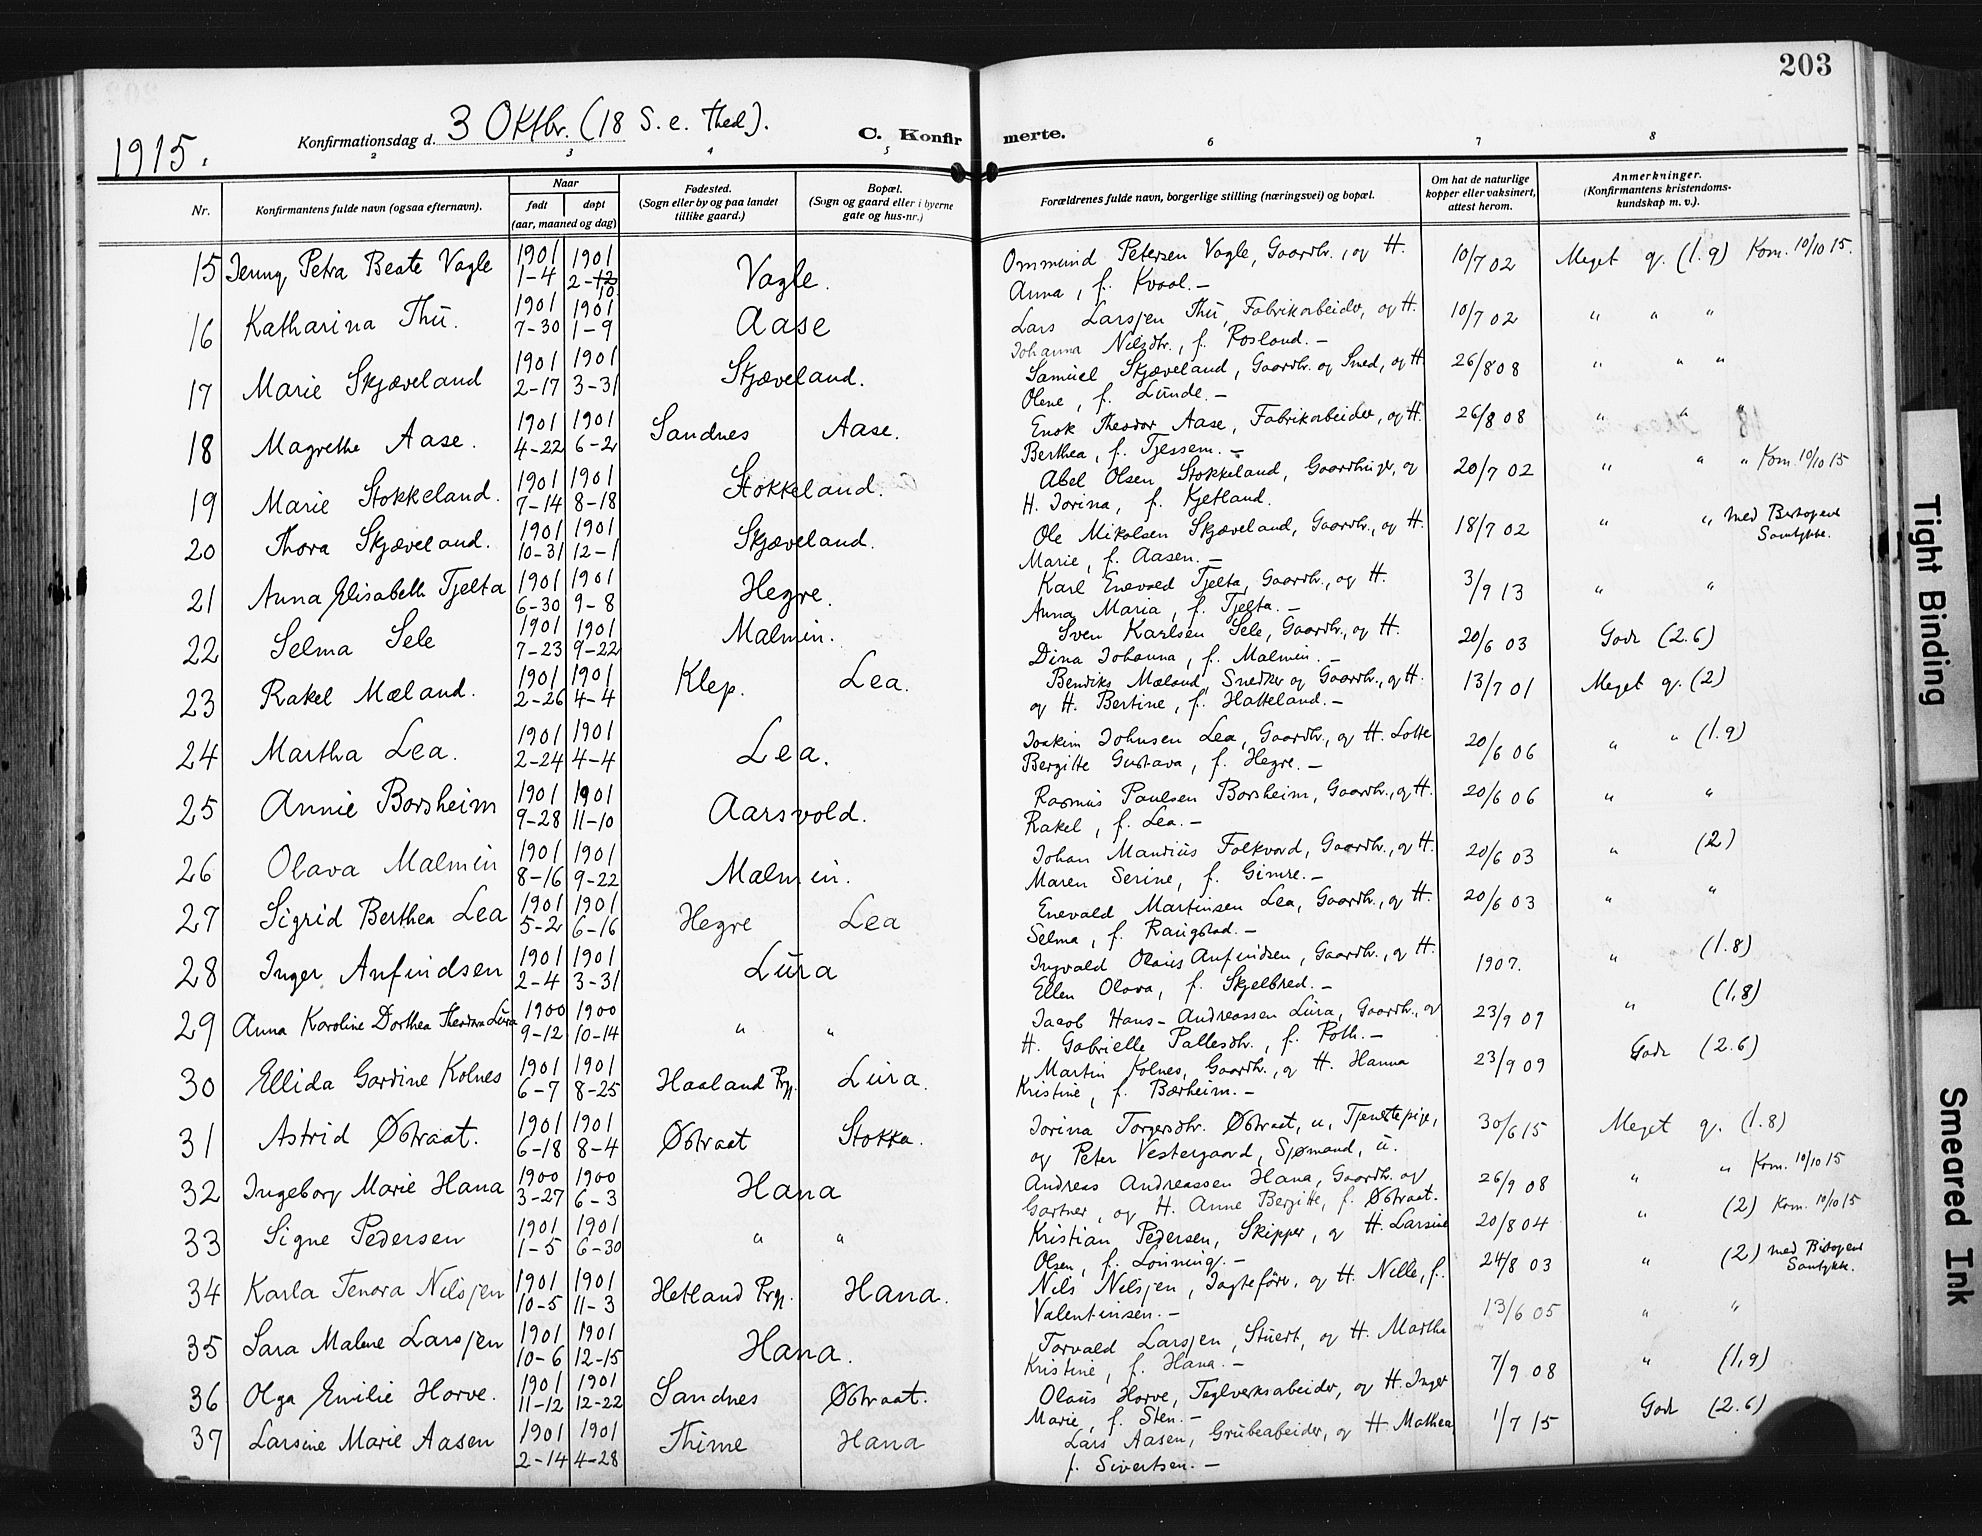 203
1915.
Konfirmationsdag d. 3 Oktbr. (18 S. e. Tred).
C. Konfirmerte.
2 3 4 5 6 7 8
Nr.
Konfirmantens fulde navn (ogsaa efternavn).
Naar
født døpt
(aar, maaned og dag)
Fødested.
(Sogn eller by og paa landet
tillike gaard.)
Bopæl.
(Sogn og gaard eller i byerne
gate og hus-nr.)
Forældrenes fulde navn, borgerlige stilling (næringsvei) og bopæl.
Om hat de naturlige
kopper eller vaksinert,
attest herom.
Anmerkninger.
(Konfirmantens kristendoms-
kundskap m. v.).
15 Jenny Petra Beate Vagle 1901 1-4 1901 2-10 Vagle. Ommund Petersen Vagle, Gaardbr., og H. 10/7 02 Meget g. (1.9) Kom. 10/10 15.
Anna, f. Kvaal. -
16 Katharina Thu. 1901 7-30 1901 1-9 Aase Lars Larsen Thu, Fabrikarbeider, og H. 10/7 02 " " "
Johanna Nilsdtr., f. Rosland. -
17 Marie Skjæveland 1901 2-17 1901 3-31 Skjæveland. Samuel Skjæveland, Gaardbr. og Smed, og H. 26/8 08 " " "
Olene, f. Lunde. -
18 Magrethe Aase. 1901 4-22 1901 6-2 Sandnes Aase. Enok Theodor Aase, Fabrikarbeider, og H. 26/8 08 " " "
Berthea, f. Tjessem. -
19 Marie Stokkeland. 1901 7-14 1901 8-18 Stokkeland. Abel Olsen Stokkeland, Gaardbruger, og 20/7 02 " " " Kom. 10/10 15
H. Jorina, f. Kjetland.
20 Thora Skjæveland. 1901 10-31 1901 12-1 Skjæveland. Ole Mikalsen Skjæveland, Gaardbr., og H. 18/7 02 " " med Biskopens
Samtykke.
Marie, f. Aasen. -
21 Anna Elisabeth Tjelta 1901 6-30 1901 9-8 Hegre. Karl Enevald Tjelta, Gaardbr., og H. 3/9 13 " "
Anna Maria, f. Tjelta. -
22 Selma Sele 1901 7-23 1901 9-22 Malmin. Sven Karlsen Sele, Gaardbr., og H. 20/6 03 Godt (2.6)
Dina Johanna, f. Malmin. -
23 Rakel Mæland. 1901 2-26 1901 4-4 Klep. Lea. Bendiks Mæland, Snedker og Gaardbr., og H. 13/7 01 Meget g. (2)
og H. Bertine, f. Hatteland. -
24 Martha Lea. 1901 2-24 1901 4-4 Lea. Joakim Johnsen Lea, Gaardbr., og H. Lotte 20/6 06 " " (1.9)
Bergitte Gustava, f. Hegre. -
25 Annie Borsheim 1901 9-28 1901 11-10 Aarsvold. Rasmus Paulsen Borsheim, Gaardbr., og H. 20/6 06 " "
Rakel, f. Lea. -
26 Olava Malmin 1901 8-16 1901 9-22 Malmin. Johan Mandius Folkvord, Gaardbr., og H. 20/6 03 " (2)
Maren Serine, f. Gimre. -
27 Sigrid Berthea Lea 1901 5-2 1901 6-16 Hegre Lea Enevald Martinsen Lea, Gaardbr., og H. 20/6 03 " "
Selma, f. Raugstad. -
28 Inger Anfindsen 1901 2-4 1901 3-31 Lura Ingvald Olaus Anfindsen, Gaardbr., og H. 1907. " (1.8)
Ellen Olava, f. Skjelbred. -
29 Anna Karoline Dorthea Theodora Lura 1900 9-12 1900 10-14 " " Jacob Hans-Andreassen Lura, Gaardbr., og 23/9 09 " (1,8)
H. Gabrielle Pallesdtr., f. Roth. -
30 Ellida Gardine Kolnes 1901 6-7 1901 8-25 Haaland Prgj. Lura. Martin Kolnes, Gaardbr., og H. Hanna 23/9 09 Godt (2.6)
Kristine, f. Bærheim. -
31 Astrid Østraat. 1901 6-18 1901 8-4 Østraat Stokka. Jorina Torgersdtr. Østraat, u, Tjenestepige, 30/6 15 Meget g. (1.8)
og Peter Vestergaard, Sjømand, u.
32 Ingeborg Marie Hana 1900 3-27 1900 6-3 Hana Andreas Andreassen Hana, Gaardbr. og 26/9 08 " " Kom. 10/10 15
Gartner, og H. Anne Bergitte, f. Østraat.
33 Signe Pedersen 1901 1-5 1901 6-30 " " Kristian Pedersen, Skipper, og H. Larsine 20/8 04 " (2) Kom. 10/10 15
Olsen, f. Lonning. -
34 Karla Tenora Nilsjen 1901 10-5 1901 11-3 Hetland Prgj. Hana. Nils Nilsjen, Jagtefører, og H. Nille, f. 24/8 03 " (2) med Biskopens
Samtykke.
Valentinsen. -
35 Sara Malene Larsjen 1901 10-6 1901 12-15 Hana. Torvald Larsjen, Stuert, og H. Martha 13/6 05 " "
Kristine, f. Hana. -
36 Olga Emilie Horve. 1901 11-12 1901 12-22 Sandnes Østraat. Olaus Horve, Teglverksarbeider, og H. Inger 7/9 08 " (1,9)
Marie, f. Sten. -
37 Larsine Marie Aasen 1901 2-14 1901 4-28 Thime Hana Lars Aasen, Grubearbeider, og H. Mathea 1/7 15 Godt (2.6)
f. Sivertsen. -
Tight Binding
Smeared Ink